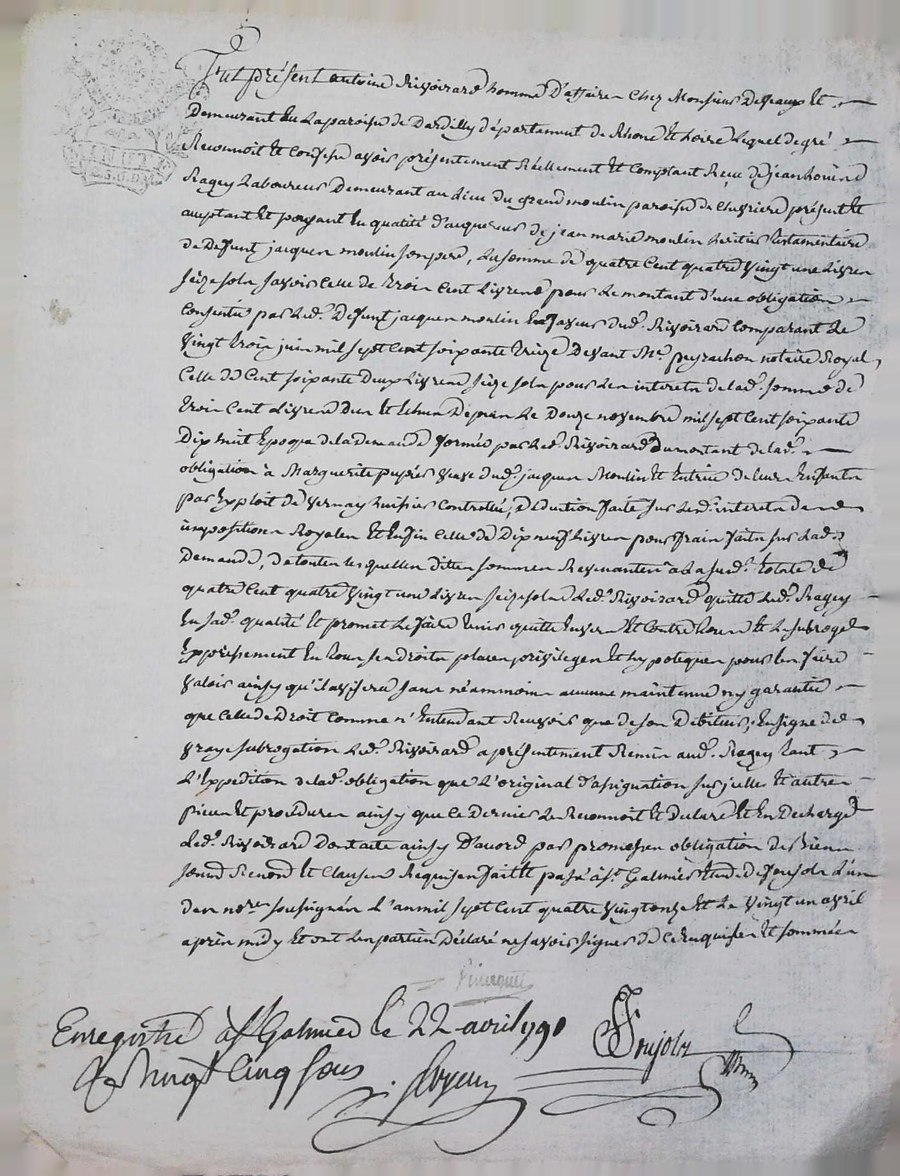 Fut présent antoine Rivoirard homme D'affaire Chez Monsieur Et
Demeurant En La paroisse de Dardilly département de Rhone Et Loire Lequel de gré
Reconnoit Et Confesse avoir présentement Réellement Et Comptant Reçu de jean
Ragey Laboureur Demeurant au Lieu du grand moulin paroisse de Chevriere présent Et
aceptant Et payant En qualité d'acquereur de jean marie moulin héritier testamentaire
de Defunt jacques moulin son pere, La somme de quatre Cent quatre Vingt une Livres
seize sols savoir Celle de trois Cent Livres pour Le montant d'une obligation
Consentie par Led. Defunt jacques moulin En faveur dud. Rivoirard Comparant Le
Vingt trois juin mil sept Cent soixante treize Devant Me. peyrachon notaire Royal,
Celle de Cent soixante Deux Livres seize sols pour Les interets de lad. somme de
trois Cent Livres Dus Et Echus Depuis Le Douze novembre mil sept Cent soixante
Dix huit Epoque de la Demande formée par Led. Rivoirard du montant de lad.
obligation à Marguerite Veuve dud. jacques Moulin Et tutrice de leurs Enfants
par Exploit de Vernay huissier Controllé, Déduction faite sur Lesd. interets des
impositions Royales Et Enfin Celle de Dix neuf Livres pour frais faits sur lad.
Demande, de toutes lesquelles dittes sommes Revenantes a La susd. totale de
quatre Cent quatre Vingt une Livres seize sols Led. Rivoirard quitte Led. Ragey
En sad. qualité Et promet Le faire tenir quitte Envers Et Contre tous Et Le subroge
Expressement En tous ses Droits places privileges Et hypoteques pour s'en faire
Valoir ainsy qu'il avisera sans néammoins aucune maintenue ny garantie
que Celle de Droit Comme n'Entendant Recevoir que de son Debiteur; En signe de
Vraye subrogation Led. Rivoirard a présentement Remis aud. Ragey tant
L'Expedition de lad. obligation que L'original d'assignation sur jcelle Et autres
pieces Et procedures ainsy que Ce Dernier Le Reconnoit Et Declare Et En Decharge
Led. Rivoirard Dont acte ainsy D'acord par promesses obligation de Biens
Renond Et Clauses Requises fait Et passé à St. Galmier Etude de Poujols L'un
des nores. soussignés L'an mil sept Cent quatre Vingt onze Et Le Vingt un avril
après midy Et ont Les parties Déclaré ne savoir signer de Ce Enquises Et sommées
Enregistré a St Galmier le 22 avril 1791
Vingt Cinq sous
Poujols